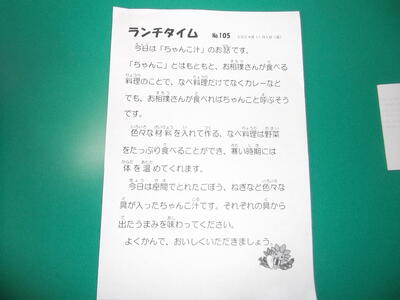 ランチタイム No.105 2024年11月1日(金)
今日は「ちゃんこ汁」のお話です。
「ちゃんこ」とはもともと、お相撲さんが食べる
料理のことで、なべ料理だけでなくカレーなど
でも、お相撲さんが食べればちゃんこと呼ぶそう
です。
色々な材料を入れて作る、なべ料理は野菜
をたっぷり食べることができ、寒い時期には
体を温めてくれます。
今日は座間でとれたごぼう、ねぎなど色々な
具が入ったちゃんこ汁です。それぞれの具から
出たうまみを味わってください。
よくかんで、おいしくいただきましょう。